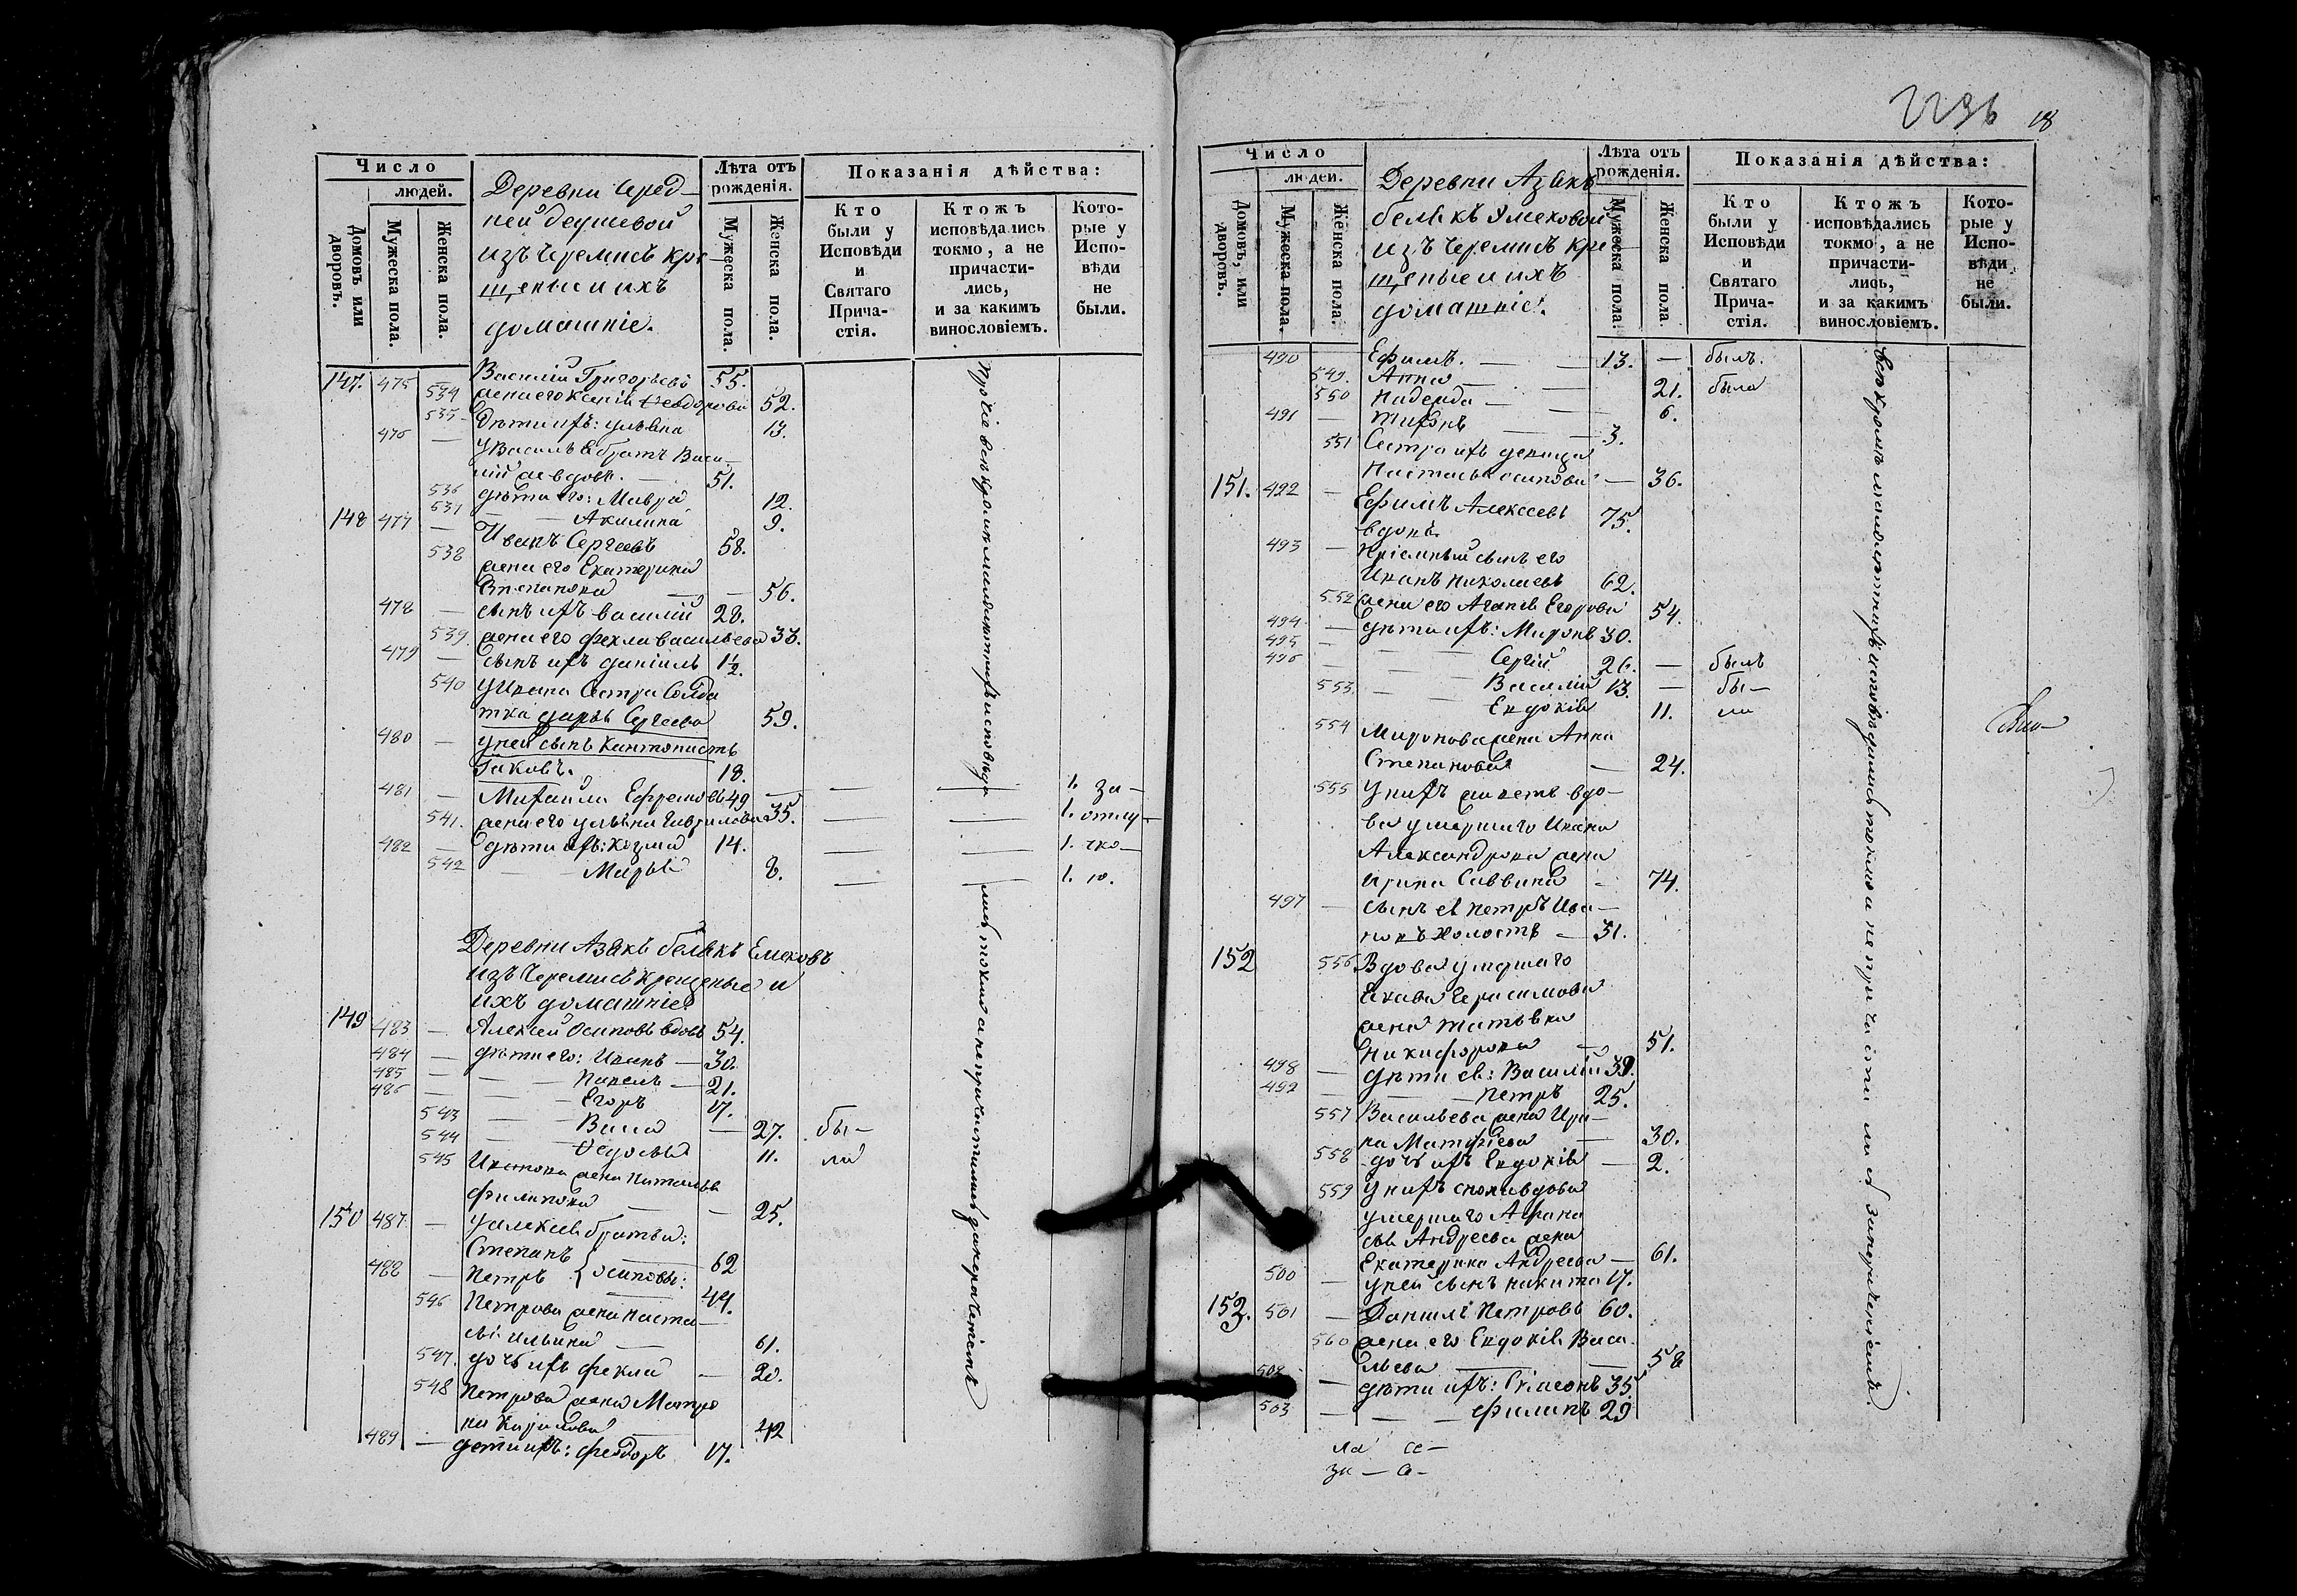 Число
людей.
Домовъ или дворовъ.
Мужеска пола.
Женска пола.
Деревни Сред-
ней
изъ Черемисъ кре-
щеные и ихъ
домашніе.
Лѣта отъ рожденія.
Мужеска пола.
Женска пола.
Показанія дѣйства:
Кто были у Исповѣди и Святаго Прича-стія.
Ктожъ исповѣдались токмо, а не причасти-лись, и за какимъ винословіемъ.
Кото-рые у Испо-вѣди не были.
147. 475 Василій Григорьевъ 55.
534 жена его Ѳеодорова 52.
535 Дѣти ихъ: Ульяна 13.
476 — У Василья братъ Васи-
лій же вдовъ. — 51.
536 дѣти его: Мавра 12.
537 — Акилина 9.
148 477 — Иванъ Сергеевъ 58.
538 жена его Екатерина
Степанова — 56.
478 — сынъ ихъ Василій 28.
539 жена его Фекла Васильева 33.
479 — сынъ ихъ Даніилъ 1½.
540 У Ивана сестра Солда
тка Дарья Сергеева 59.
480 — у ней сынъ кантонистъ
Іаковъ. 18.
481 — Михаила Ефремовъ 49 — — — 1. за-
541. жена его Ульяна Гаврилова 35. — — 1. отлу-
482 — дѣти ихъ: Козма 14. — — 1. чко-
542 — Марья 8. — — 1. ю.
Прочіе всѣ кромѣ малолѣтнихъ исповѣда
лись токмо а не причастились
Деревни Азякъ белякъ Емековъ
изъ Черемисъ крещеные и
ихъ домашніе
149 483 — Алексей Осиповъ вдовъ 54.
484 — дѣти его: Иванъ — 30.
485 — — Павелъ — 21.
486 — — Егоръ 17.
543 — — Васса — 27. бы-
544 — — Ѳедосья 11. ли
545 Иванова жена Наталья
Филипова — — 25.
150 487 — У Алексея братья:
Степанъ 62
488 — Петръ } Осиповы: 44.
546 Петрова жена Наста-
сья Ильина — 61.
547. дочь ихъ Фекла — 20.
548 Петрова жена Матро
на Кирилова — 42
489 — дети ихъ: Феодоръ 17.
18
Число
людей.
Домовъ, или дворовъ.
Мужеска пола.
Женска пола.
Деревни Азякъ
белякъ Эмековой
изъ Черемисъ кре-
щеные и ихъ
домашніе.
Лѣта отъ рожденія.
Мужеска пола.
Женска пола.
Показанія дѣйства:
Кто были у Исповѣди и Святаго Прича-стія.
Ктожъ исповѣдались токмо, а не причасти-лись, и за какимъ винословіемъ.
Кото-рые у Испо-вѣди не были.
490 — Ефимъ. — — 13. — былъ.
549. Анна — — 21. была
550 Надежда — — 6.
491 — Тихонъ — — 3.
551 Сестра ихъ девица
Настасья Осипова — 36.
151. 492 — Ефимъ Алексеевъ
вдовъ. 75.
493 — Пріемный сынъ его
Иванъ Николаевъ 62.
552 жена его Агапія Егорова 54.
494 — дѣти ихъ: Миронъ 30.
495 — — Сергій 26. — былъ
496 — — Василій 13. — бы-
553 — — Евдокія 11. ли
554 Миронова жена Анна
Степанова — 24.
555 У нихъ живетъ вдо-
ва умершаго Ивана
Александрова жена
Ирина Саввина — 74.
497 — сынъ ея Петръ Ива-
новъ холостъ — 31.
152 556 Вдова умершаго
Герасимова
жена Татьяна
Никифорова — 51.
498 — дѣти ея: Василій 39.
499 — — Петръ 25.
557 Васильева жена Ири-
на Матфіева — 30.
558 дочь ихъ Евдокія — 2.
559 У нихъ сноха вдова
умершаго Афана
сья Андреева жена
Екатерина Андреева — 61.
500 — у ней сынъ Никита 17.
153. 501 — Данилъ Петровъ 60.
560 жена его Евдокія Васи
льева — 58
502 — дѣти ихъ: Симеонъ 35.
503 — — Филипъ 29
Всѣ кромѣ малолѣтнихъ исповѣдались токмо а не причасти лись за нераченіемъ.